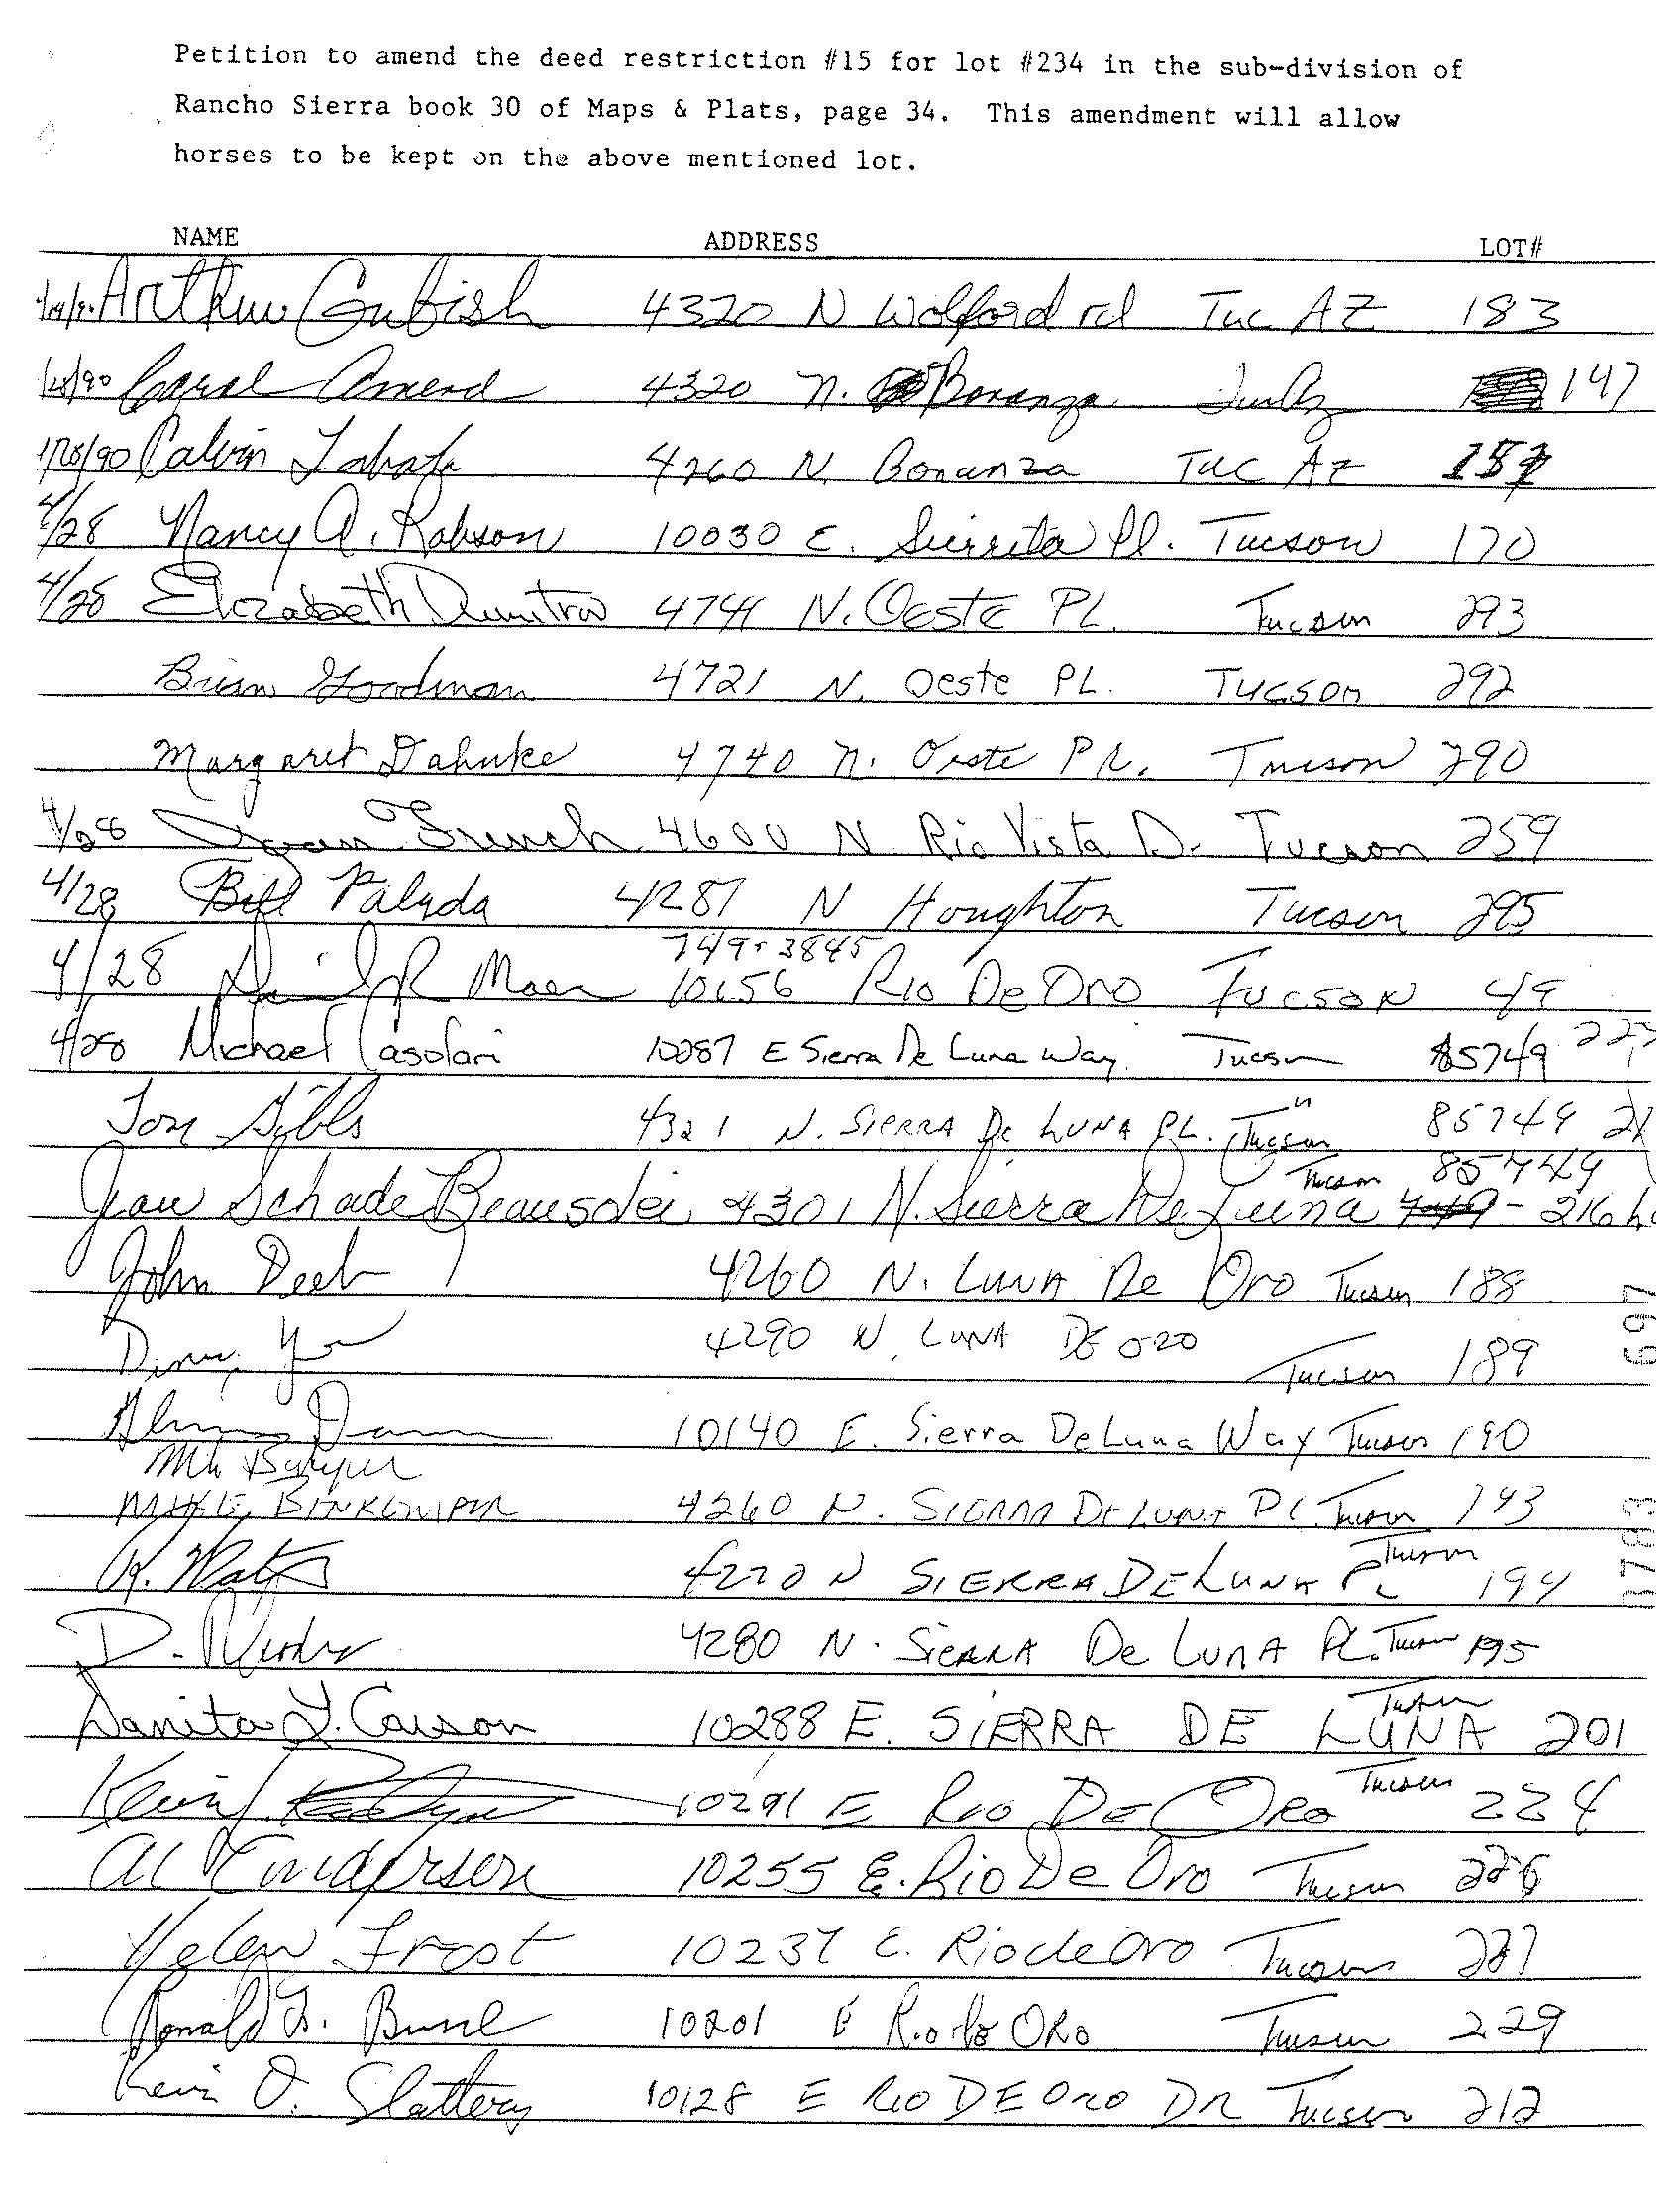 Petition to amend the deed restriction #15 for lot #234 in the sub-division of
Rancho Sierra book 30 of Maps & Plats, page 34. This amendment will allow
horses to be kept on the above mentioned lot.
NAME ADDRESS LOT#
Arthur Gubish 4320 N Wolford rd Tuc AZ 183
1/28/90 Carol Amend 4320 N. Bonanza 147
1/28/90 Calvin 4260 N. Bonanza Tuc AZ
4/28 Nancy A. Robson 10030 E. Sierrita Pl. Tucson 170
4/28 Elizabeth 4741 N. Oeste PL. Tucson 293
Brian Goodman 4721 N. Oeste PL. Tucson 292
Margaret Dahnke 4740 N. Oeste PL. Tucson 290
4/28 Joan French 4600 N Rio Vista D. Tucson 259
4/28 Bill Palyda 4281 N Houghton Tucson 295
749-3845
4/28 R 10156 Rio De Oro Tucson 49
4/28 Michael Casolari 10287 E Sierra De Luna Way Tucson 85749
Tom Gibbs 4321 N. SIERRA De LUNA PL. Tucson 85749
Tucson 85749
Jean Schade Beausolei 4301 N. Sierra De Luna - 216
John Deeb 4260 N. LUNA De Oro Tucson 188
4290 N. LUNA DE ORO Tucson 189
10140 E. Sierra DeLuna Way Tucson 190
MIKE 4260 N. SIERRA De LUNA Pl. Tucson 193
Tucson
R. 4270 N SIERRA DE LUNA PL 194
D. 4280 N. SIERRA De LUNA PL. Tucson 195
Tucson
Danita L. Carson 10288 E. SIERRA DE LUNA 201
Tucson
Kevin 10291 E RIO DE ORO 224
Al 10255 E. Rio De Oro Tucson 226
Helen Frost 10237 E. Rio de Oro Tucson 227
Ronald 10201 E Rio de ORO Tucson 229
Kevin O. Slattery 10128 E RIO DE ORO DR Tucson 212
8783 697